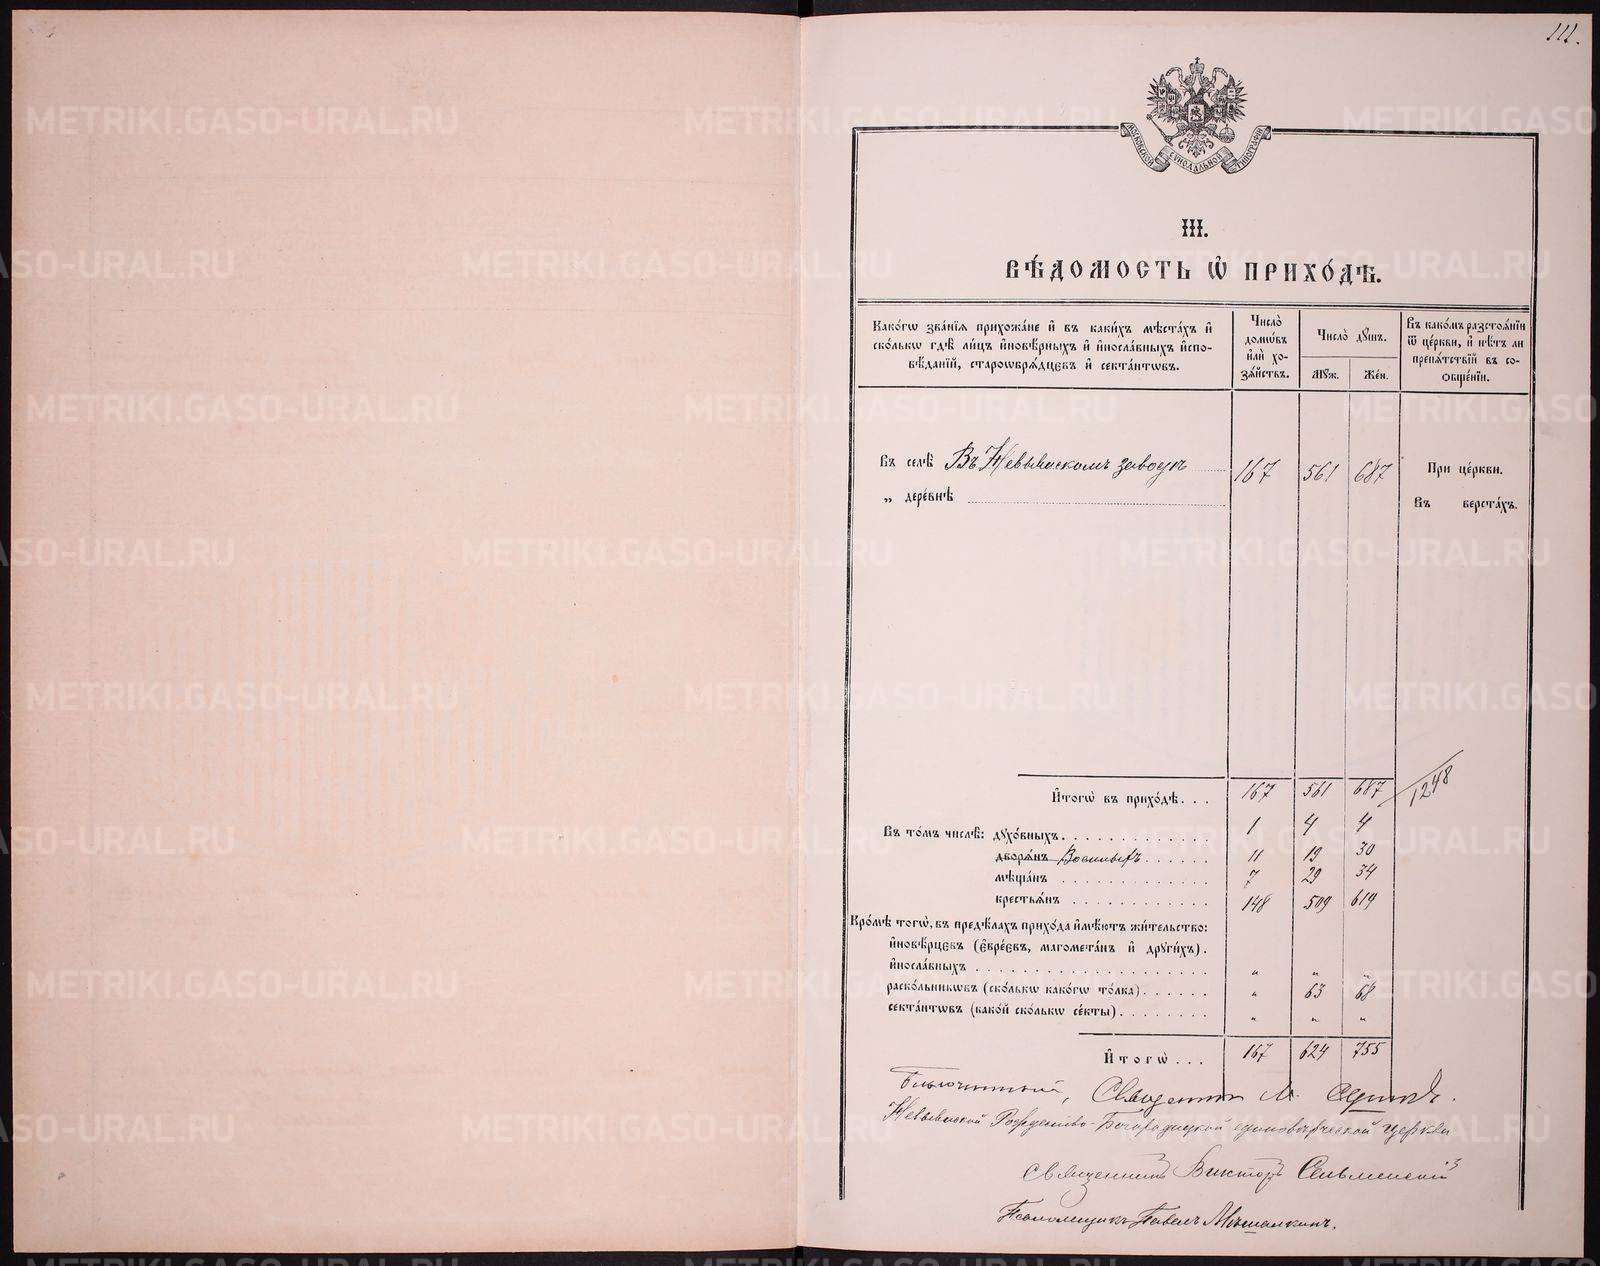 111.
МОСКОВСКОЙ СѴНОДАЛЬНОЙ ТИПОГРАФІИ
III.
ВѢДОМОСТЬ Ѡ ПРИХОДѢ.
Какогѡ званїѧ прихожане и въ какихъ мѣстахъ и
сколькѡ гдѣ лицъ иновѣрныхъ и инославныхъ испо-
вѣданїй, старообрѧдцевъ и сектантѡвъ.
Число
домѡвъ
или хо-
зѧйствъ.
Число дꙋшъ.
Мꙋж.
Жен.
Въ какомъ разстоѧнїи
ѿ церкви, и нѣтъ ли
препѧтствїй въ со-
общенїи.
Въ селѣ Въ Невьянскомъ заводѣ 167 561 687 При церкви.
„ деревнѣ Въ верстахъ.
Итогѡ въ приходѣ. . . 167 561 687 1248
Въ томъ числѣ: дꙋховныхъ. 1 4 4
дворѧнъ Военныхъ 11 19 30
мѣщанъ 7 29 34
крестьѧнъ 148 509 619
Кромѣ тогѡ, въ предѣлахъ прихода имѣютъ жительство:
иновѣрцевъ (евреевъ, магометанъ и дрꙋгихъ).
инославныхъ „ „ „
раскольникѡвъ (сколькѡ какогѡ толка). „ 63 68
сектантѡвъ (какой сколькѡ секты). „ „ „
Итогѡ . . . 167 624 755
Благочинный, Священникъ М.
Невьянской Рождество-Богородицкой единовѣрческой церкви
Священникъ Викторъ
Псаломщикъ Павелъ Мѣшалкинъ.
METRIKI.GASO-URAL.RU